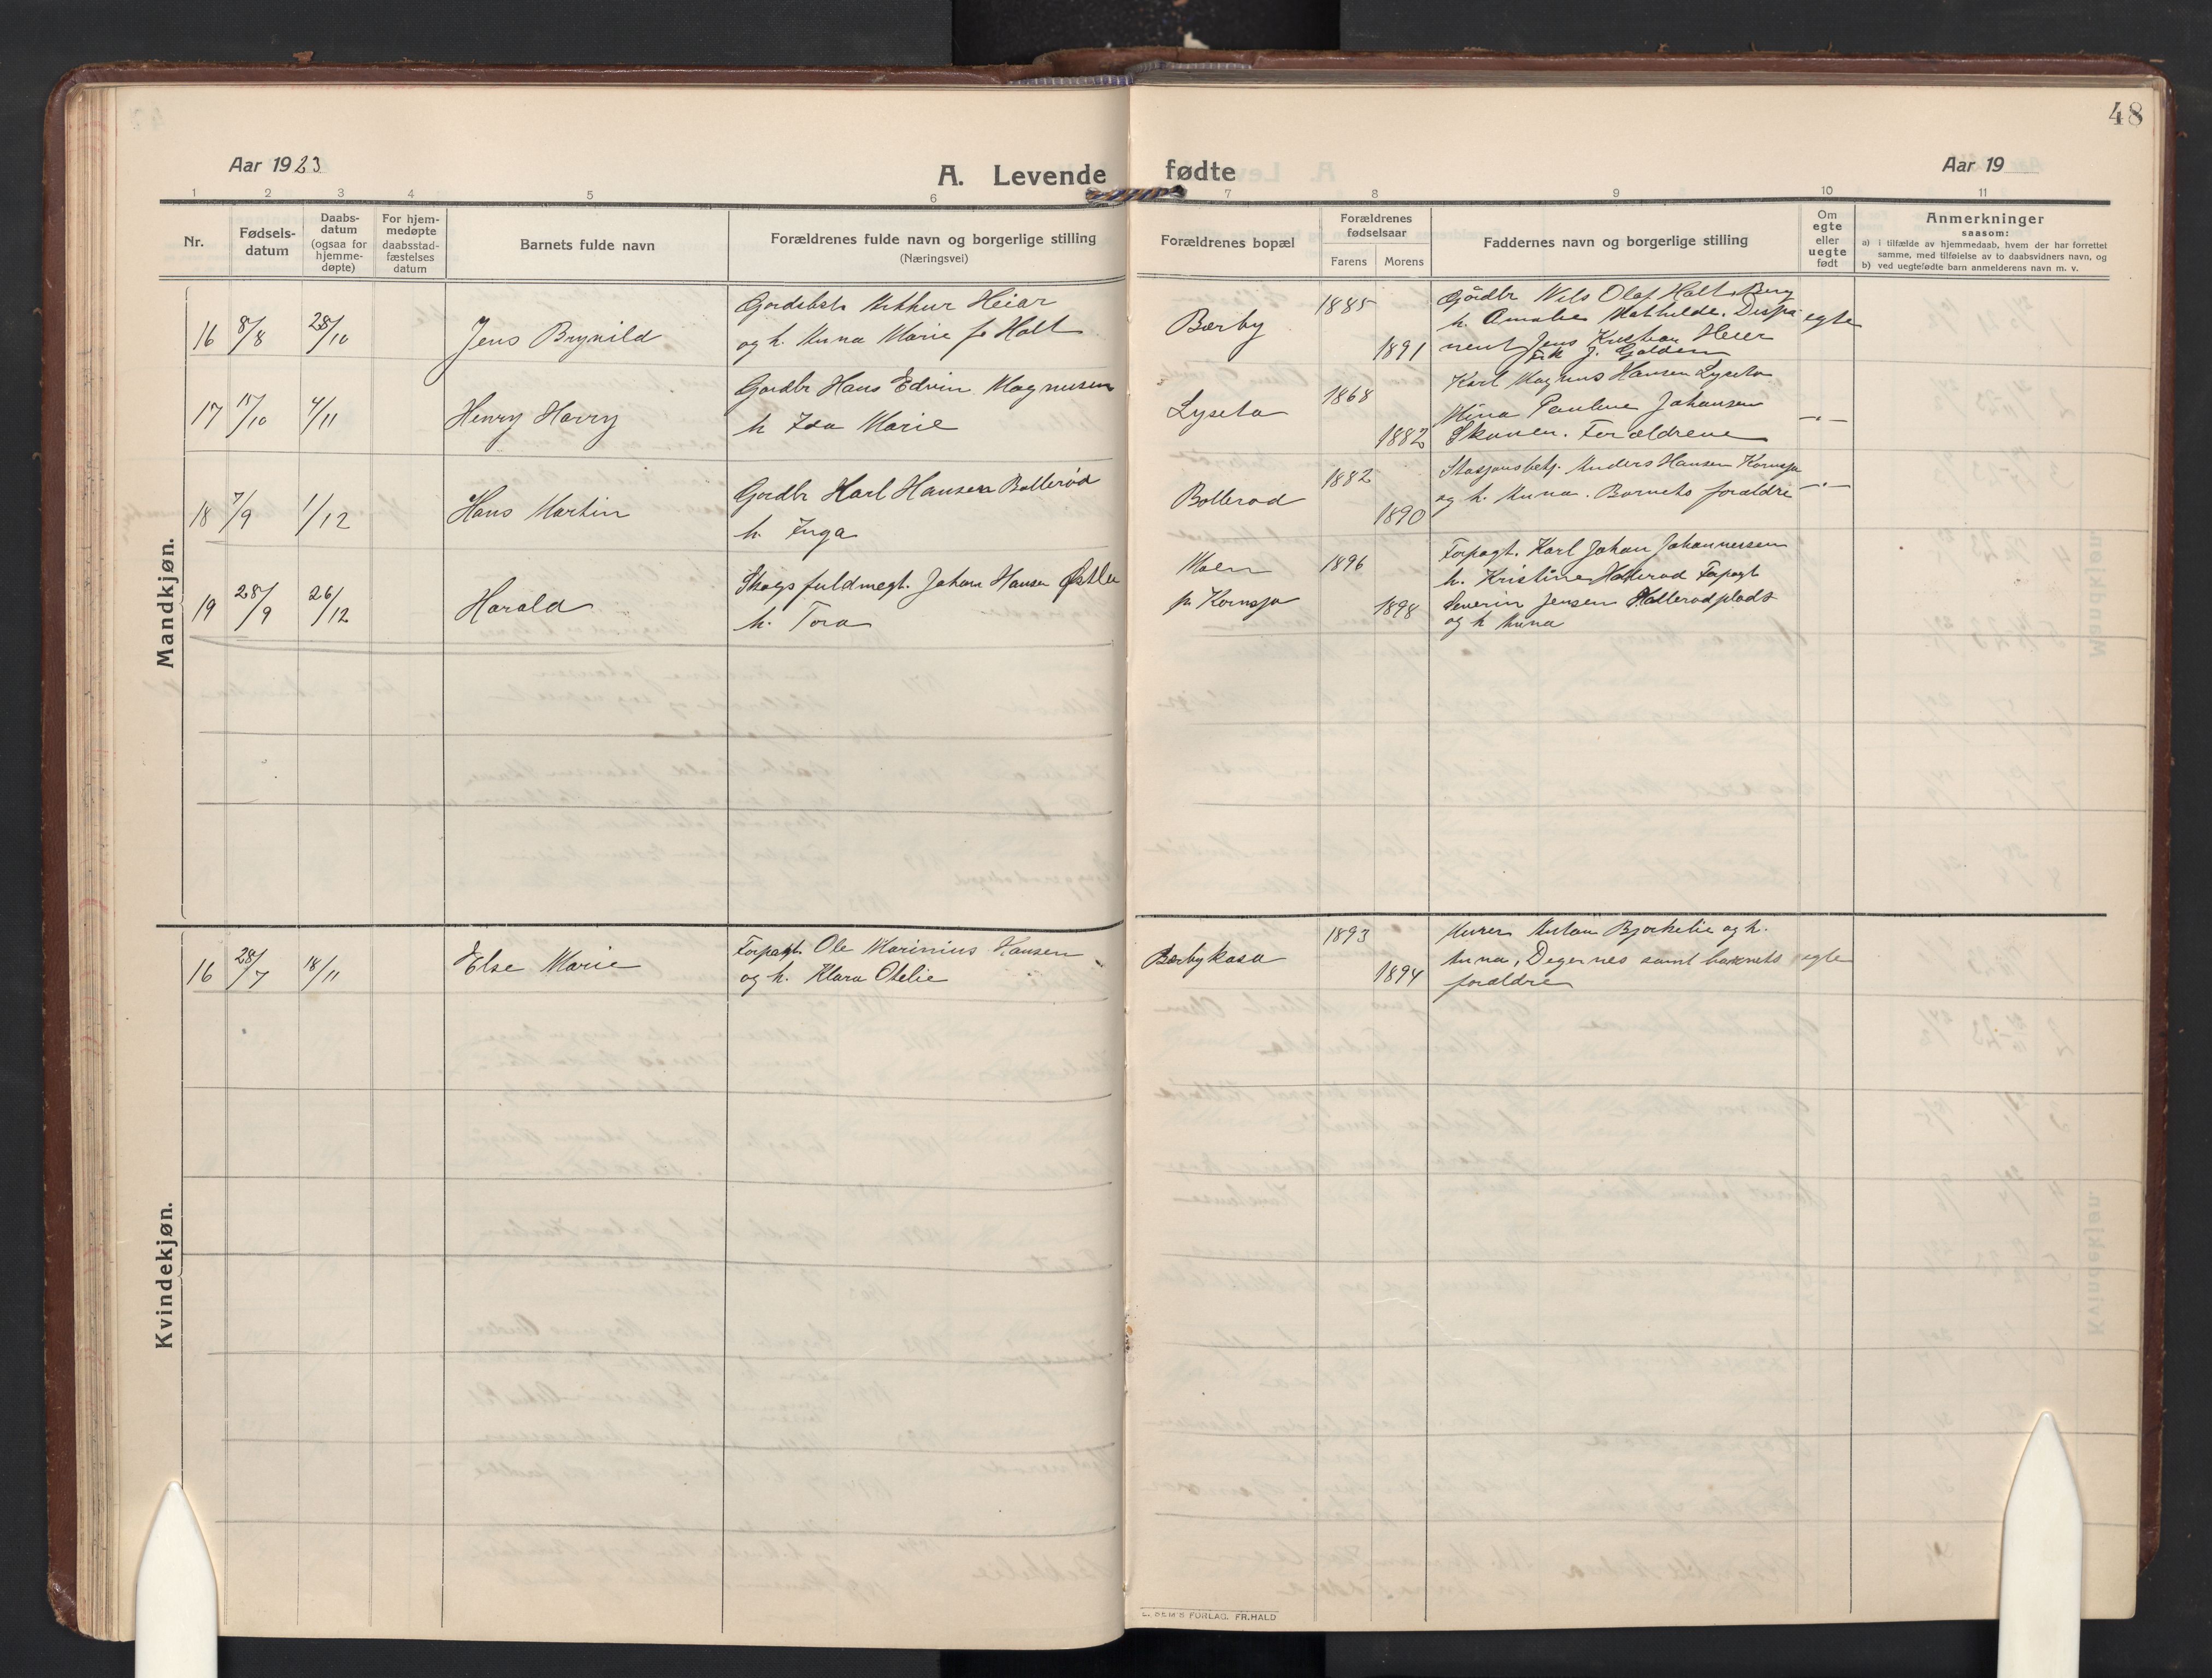 48
Aar 1923
A. Levende fødte
Aar 19
1 2 3 4 5 6 7 8 9 10 11
Nr.
Fødsels-
datum
Daabs-
datum
(ogsaa for
hjemme-
døpte)
For hjem-
medøpte
daabsstad-
fæstelses
datum
Barnets fulde navn
Forældrenes fulde navn og borgerlige stilling
(Næringsvei)
Forældrenes bopæl
Forældrenes
fødselsaar
Farens Morens
Faddernes navn og borgerlige stilling
Om
egte
eller
uegte
født
Anmerkninger
saasom:
a) i tilfælde av hjemmedaab, hvem der har forrettet
samme, med tilføielse av to daabsvidners navn, og
b) ved uegtefødte barn anmelderens navn m. v.
Mandkjøn.
16 8/8 28/10 Jens Brynild
Gardsbest. Arthur Heiar
og h. Anna Marie f. Holt
Bærby
1885
1891
Gårdbr Nils Olaf Holt, Berg
h. Amalie Mathilde. Dispo
nent Jens Kristian Heier
Frk J. Golden
egte
17 15/10 4/11 Henry Harry
Gardbr Hans Edvin Magnusen
h Ida Marie
Lyseto
1868
1882
Karl Magnus Hansen Lyseto
Mina Pauline Johansen
Skauen. Forældrene
-"-
18 7/9 1/12 Hans Martin
Gardbr Karl Hansen Bollerød
h. Inga
Bollerød
1882
1890
Stasjonsbetj. Anders Hansen Kornsjø
og h. Anna. Barnets forældre
-"-
19 28/9 26/12 Harald
Skogsfuldmegt. Johan Hansen Østlie
h. Tora
Moen
pr Kornsjø
1896
1898
Forpagt. Karl Johan Johannessen
h. Kristine Hollerød Forpagt
Severin Jensen Hollerødplads
og h Anna
Kvindekjøn.
16 28/7 18/11 Else Marie
Forpagt. Ole Marinius Hansen
og h. Klara Otelie
Bærbykasa
1893
1894
Murer Anton Bjørkelie og h.
Anna, Degernes samt barnets
forældre
egte
FORLAG. FR.HALD